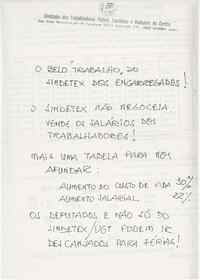 Sindicato dos Trabalhadores Têxteis, Lanifícios e Vestuário do Centro
O BELO TRABALHO, DO
SINDETEX DOS ENGABREGADES!
O SINDETEX NÃO NEGOCEIA
VENDE OS SALÁRIOS DOS
TRABALHADORES!
MAIS UMA TABELA PARA NOS
AFUNDAR:
AUMENTO DO CUSTO DE VIDA 30%
AUMENTO SALARIAL 22%
OS DEPUTADOS E NÃO SÓ DO
SINDETEX/UGT PODEM IR
DESCANSADOS PARA FÉRIAS!